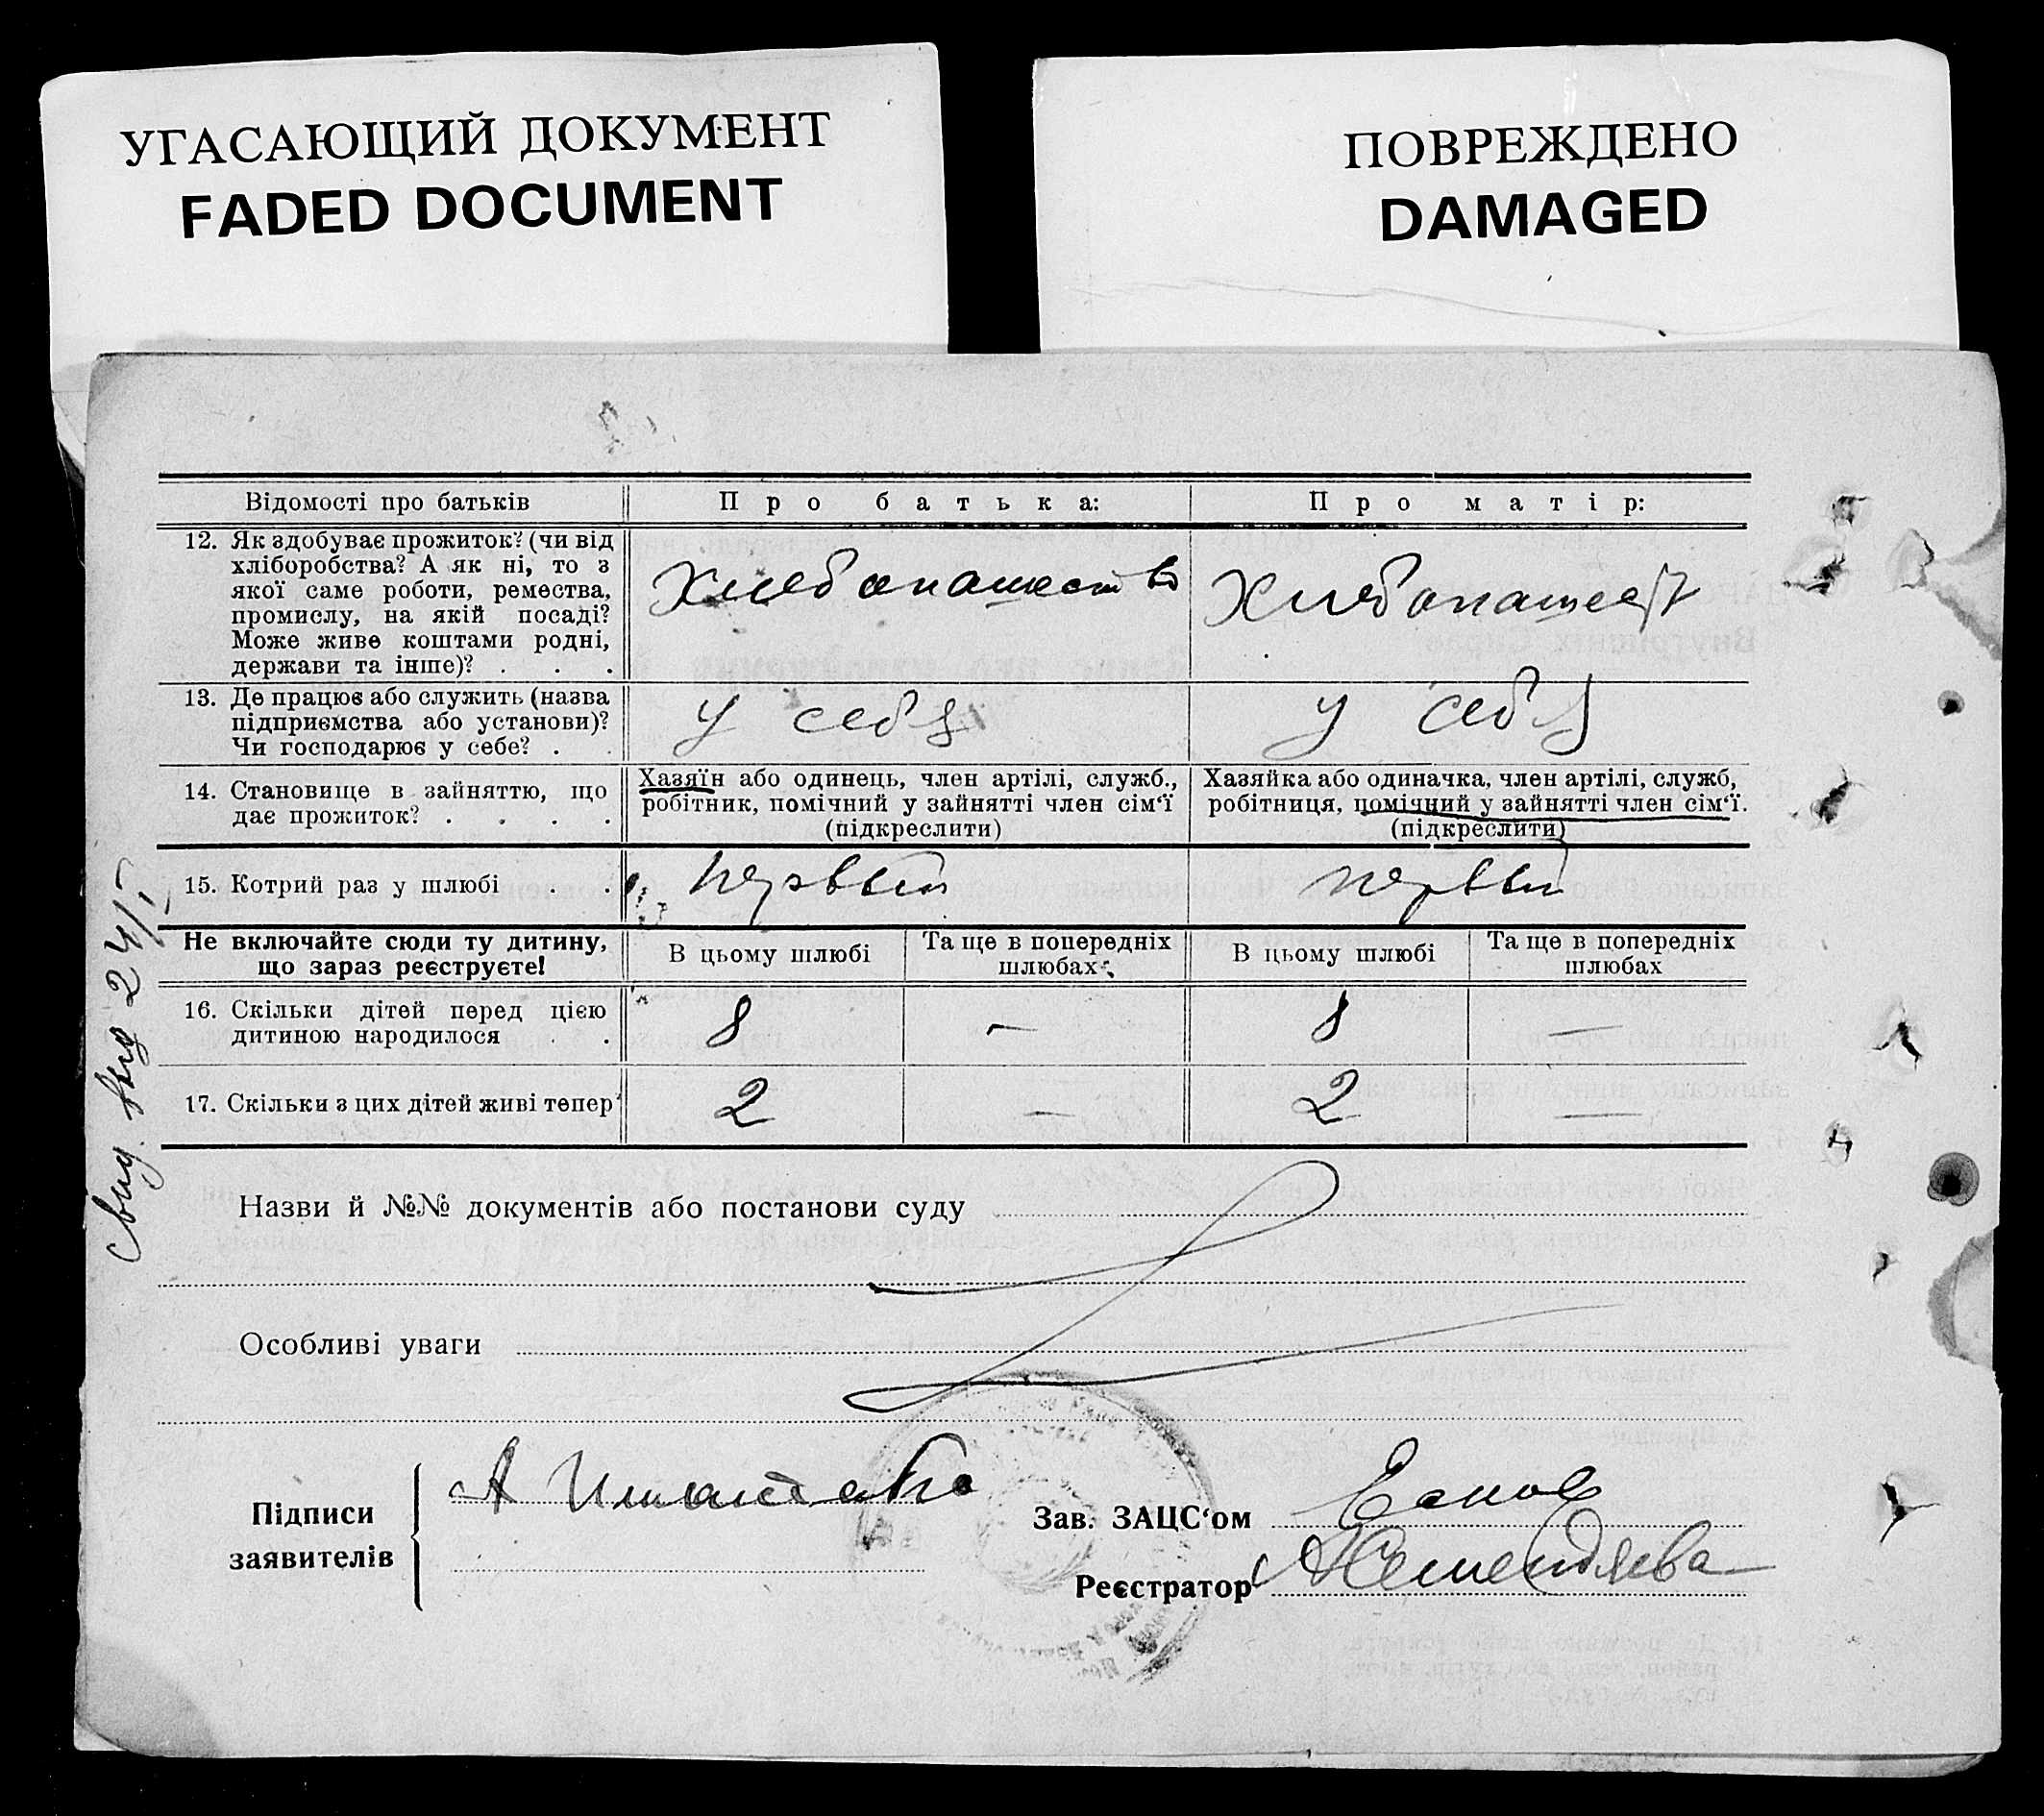 УГАСАЮЩИЙ ДОКУМЕНТ
FADED DOCUMENT
ПОВРЕЖДЕНО
DAMAGED
Відомості про батьків
Про батька:
Про матір:
12. Як здобуває прожиток? (чи від
хліборобства? А як ні, то з
якої саме роботи, ремества,
промислу, на якій посаді?
Може живе коштами родні,
держави та інше)? . . .
Хлебопашество
Хлебопашест
13. Де працює або служить (назва
підприємства або установи)?
Чи господарює у себе? . .
у себя
у себя
14. Становище в зайняттю, що
дає прожиток? . . . .
Хазяїн або одинець, член артілі, служб.,
робітник, помічний у зайнятті член сім‘ї
(підкреслити)
Хазяйка або одиначка, член артілі, служб,
робітниця, помічний у зайнятті член сім‘ї.
(підкреслити)
15. Котрий раз у шлюбі . .
первый
первый
Не включайте сюди ту дитину,
що зараз реєструєте!
В цьому шлюбі
Та ще в попередніх
шлюбах
В цьому шлюбі
Та ще в попередніх
шлюбах
16. Скільки дітей перед цією
дитиною народилося . .
8
—
8
—
17. Скільки з цих дітей живі тепер
2
—
2
—
Назви й №№ документів або постанови суду
Особливі уваги
Підписи
заявителів
А
Зав. ЗАЦС‘ом
Реєстратор
Свид. выд 24/I